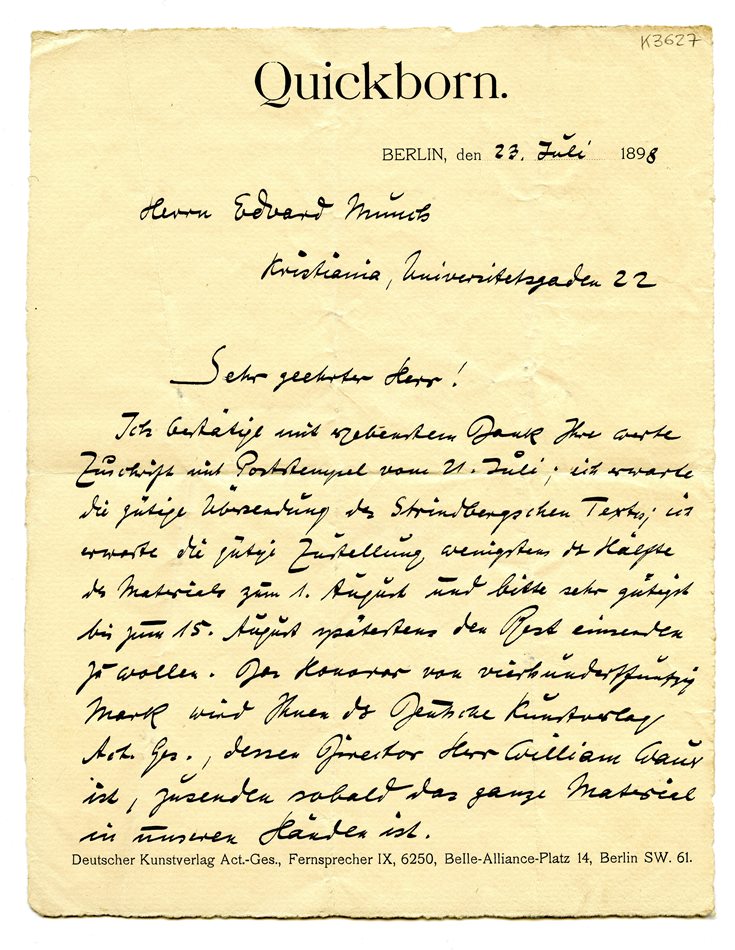 K3627
Quickborn.
BERLIN, den 23. Juli 1898
Herrn Edvard Munch
Kristiania, Universitetsgaden 22
Sehr geehrter Herr!
Ich bestätige mit ergebenstem Dank Ihre werte
Zuschrift mit Poststempel vom 21. Juli; ich erwarte
die gütige Übersendung des Strindbergschen Textes; ich
erwarte die gütige Zustellung wenigstens der Hälfte
des Materials zum 1. August und bitte sehr gütigst
bis zum 15. August spätestens den Rest einsenden
zu wollen. Das Honorar von vierhundertfünfzig
Mark wird Ihnen der Deutsche Kunstverlag
Act. Ges., dessen Director Herr William
ist, zusenden sobald das ganze Material
in unseren Händen ist.
Deutscher Kunstverlag Act.-Ges., Fernsprecher IX, 6250, Belle-Alliance-Platz 14, Berlin SW. 61.